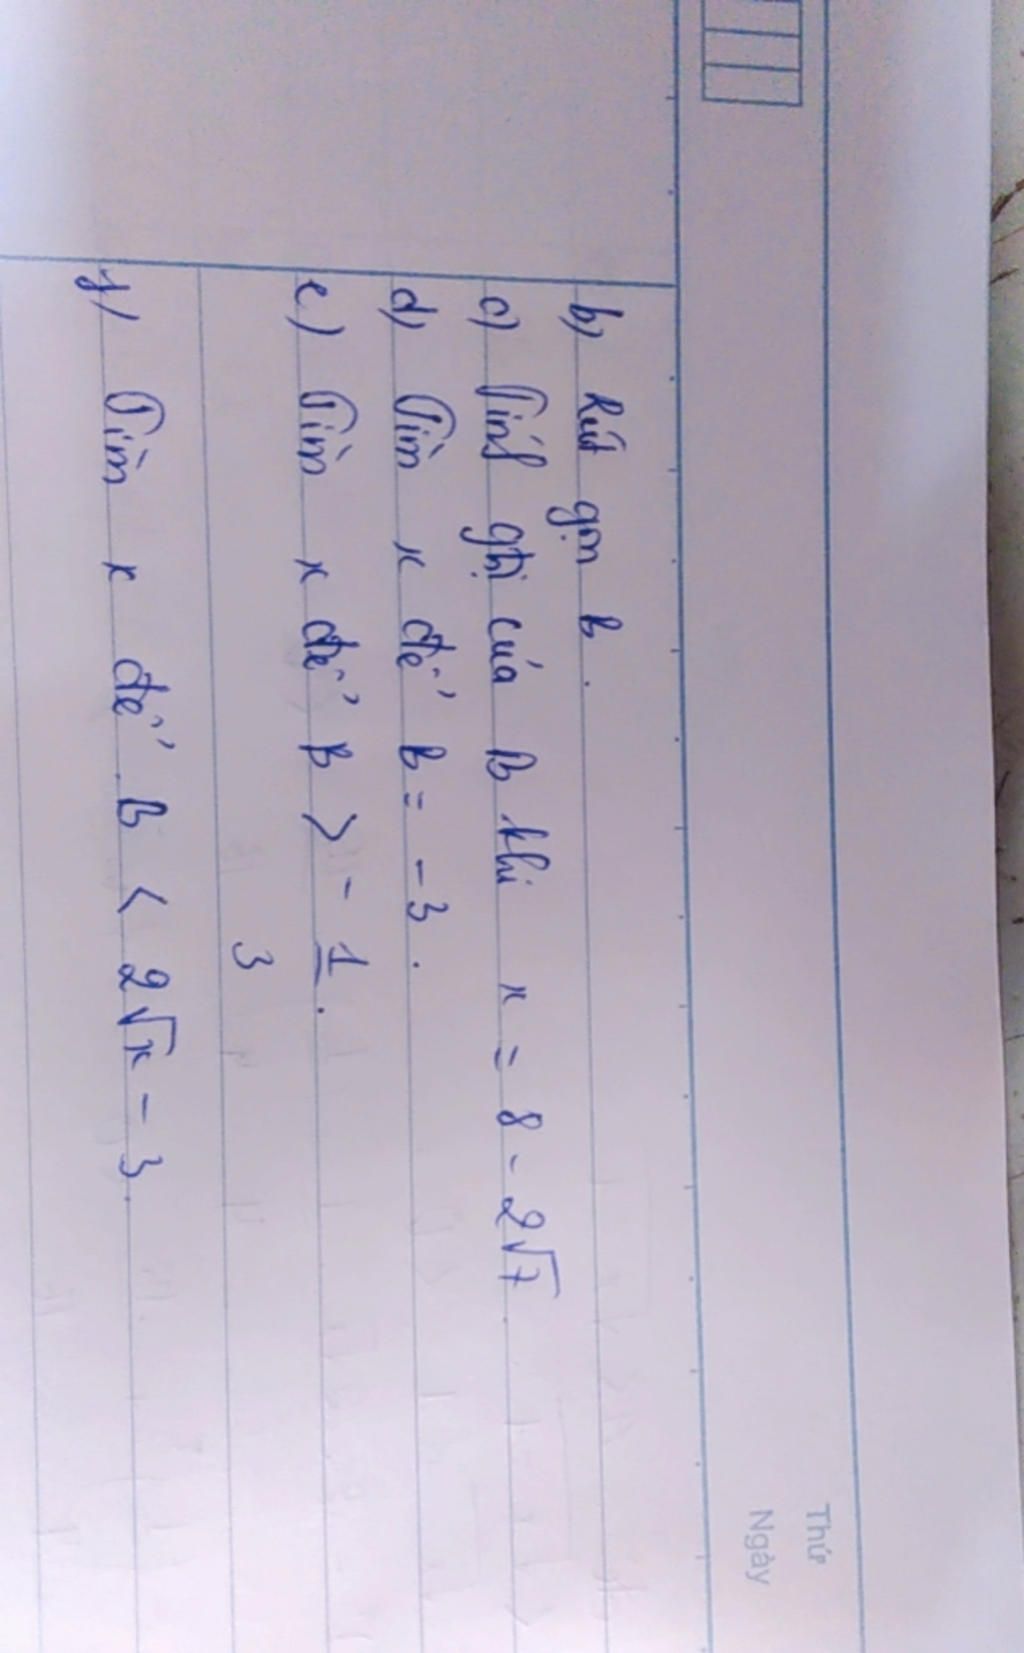 Thứ
Ngày
b) Rút gọn B.
c) Tính gtrị của B khi x = 8 - 2√7.
d) Tìm x để B = -3.
e) Tìm x để B > - 1/3.
f) Tìm x để B < 2√x - 3.